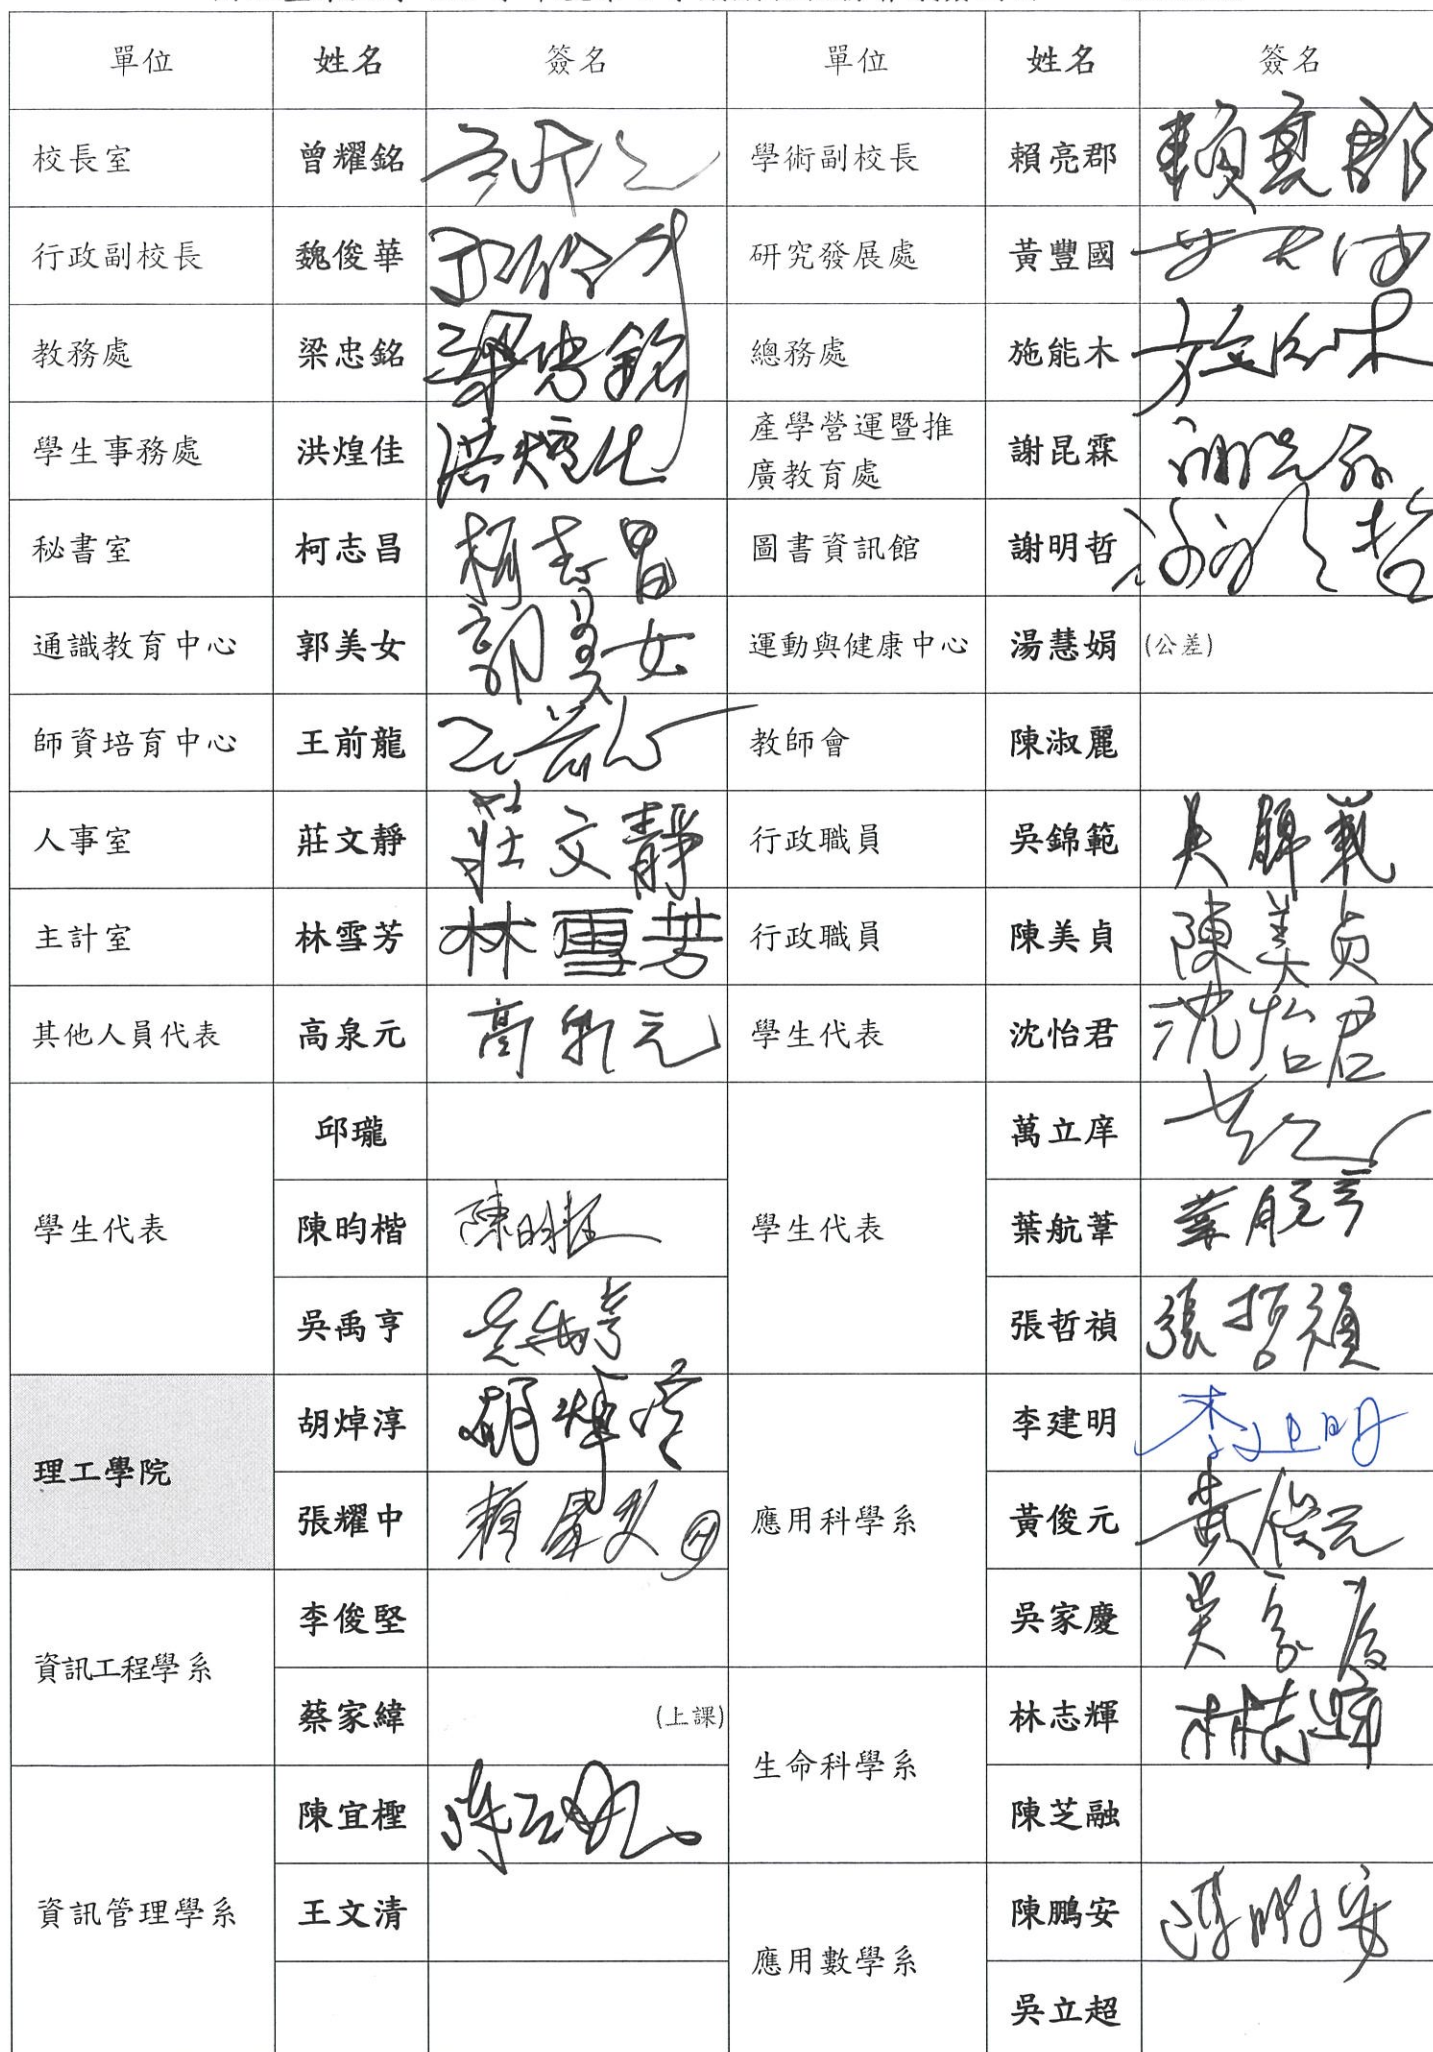 單位 姓名 簽名 單位 姓名 簽名
校長室 曾耀銘 學術副校長 賴亮郡 賴亮郡
行政副校長 魏俊華 研究發展處 黃豐國
教務處 梁忠銘 梁忠銘 總務處 施能木 施能木
學生事務處 洪煌佳 洪煌佳 產學營運暨推
廣教育處 謝昆霖
秘書室 柯志昌 柯志昌 圖書資訊館 謝明哲
通識教育中心 郭美女 郭美女 運動與健康中心 湯慧娟 (公差)
師資培育中心 王前龍 教師會 陳淑麗
人事室 莊文靜 莊文靜 行政職員 吳錦範 吳錦範
主計室 林雪芳 林雪芳 行政職員 陳美貞 陳美貞
其他人員代表 高泉元 高泉元 學生代表 沈怡君 沈怡君
學生代表 邱瓏 學生代表 萬立庠
陳昀楷 陳昀楷 葉航葦
吳禹亨 吳禹亨 張哲禎 張哲禎
理工學院 胡焯淳 胡焯淳 應用科學系 李建明 李建明
張耀中 黃俊元 黃俊元
資訊工程學系 李俊堅 吳家慶 吳家慶
蔡家緯 (上課) 生命科學系 林志輝 林志輝
資訊管理學系 陳宜檉 陳芝融
王文清 應用數學系 陳鵬安 陳鵬安
吳立超